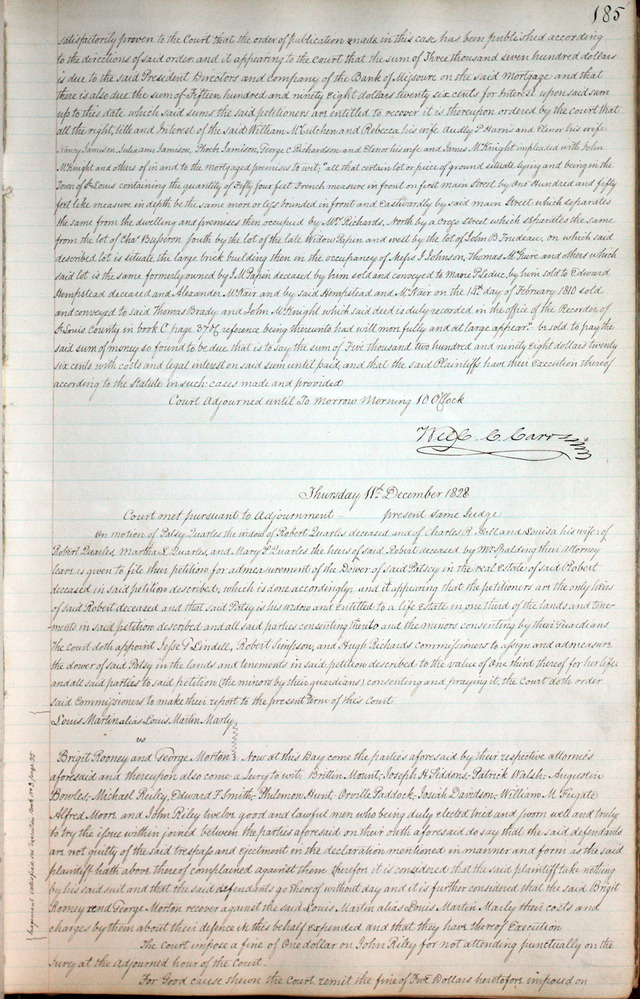 185
satisfactorily proven to the Court that the order of publication made in this case has been published according
to the directions of said order. and it appearing to the Court that the sum of Three thousand seven hundred dollars
is due to the said President Directors and Company of the Bank of Missouri on the said Mortgage and that
there is also due the sum of Fifteen hundred and ninety eight dollars twenty six cents for Interest upon said sum
up to this date which said sums the said petitioners are entitled to recover it is thereupon ordered by the court that
all the right, title and Interest of the said William McCutchen and Rebecca his wife Audly P Harris and Elenor his wife
Nancy Jamison, Jamison, Phoebe Jamison, George C Richardson and Elenor his wife and James McKnight impleaded with John
McKnight and others of in and to the mortgaged premises to wit, "all that certain lot or piece of ground situate lying and being in the
Town of St Louis containing the quantity of Fifty four feet French measure in front on first main Street by One Hundred and fifty
feet like measure in depth be the same more or less bounded in front and Eastwardly by said main Street which separates
the same from the dwelling and premises then occupied by Mr Richards, North by a Cross street which separates the same
from the lot of Chas Busseron South by the lot of the late Widow Papin and west by the lot of John B Trudeau, on which said
described lot is situate the large brick building then in the occupancy of Messrs J Johnson, Thomas M and others which
said lot is the same formerly owned by J M Papin deceased by him sold and conveyed to Marie P Leduc, by him sold to Edward
Hempstead deceased and Alexander McNair and by said Hempstead and McNair on the 14th day of February 1810 sold
and conveyed to said Thomas Brady and John McKnight which said deed is duly recorded in the office of the Recorder of
St Louis County in book C page 378, reference being thereunto had will more fully and at large appear" be sold to pay the
said sum of money so found to be due that is to say the sum of Five thousand two hundred and ninety eight dollars twenty
six cents with costs and legal interest on said sum until paid and that the said Plaintiffs have their Execution thereof
according to the Statute in such cases made and provided
Court Adjourned until To Morrow Morning 10 OClock
Will C. Carr
Thursday 11th December 1828
Court met pursuant to Adjournment present same Judge
On motion of Patsy Quarles the widow of Robert Quarles deceased and of Charles R Hall and Louisa his wife of
Robert Quarles, Martha L Quarles, and Mary P Quarles the heirs of said Robert deceased by Mr Spalding their attorney
leave is given to file their petition for admeasurement of the Dower of said Patsey in the real estate of said Robert
deceased in said petition described; which is done accordingly, and it appearing that the petitioners are the only heirs
of said Robert deceased and that said Patsy is his widow and Entitled to a life estate in one third of the lands and tene-
ments in said petition described and all said parties consenting thereto and the minors consenting by their Guardians
The court doth appoint Jesse G Lindell, Robert Simpson, and Hugh Richards commissioners to assign and admeasure
the dower of said Patsy in the lands and tenements in said petition described to the value of One third thereof for her life
and all said parties to said petition (the minors by their guardians) consenting and praying it; the Court doth order
said Commissioners to make their report to the present term of this Court
Louis Martin alias Louis Martin Marly
vs
Brigit Rooney and George Morton Now at this Day come the parties aforesaid by their respective attornies
aforesaid and thereupon also come a Jury to wit, Britten Mount, Joseph H Giddons, Patrick Walsh, Augustin
Bowles, Michael Reiley, Edward F Smith, Philemon Hunt, Orville Paddock, Josiah Davidson, William M Fugate
Alfred Moon and John Riley twelve good and lawful men who being duly elected tried and sworn well and truly
to try the issue within joined between the parties aforesaid on their oath aforesaid do say that the said defendants
are not guilty of the said trespass and ejectment in the declaration mentioned in manner and form as the said
plaintiff hath above thereof complained against them therefor it is considered that the said plaintiff take nothing
by his said suit and that the said defendants go thereof without day and it is further considered that the said Brigit
Rooney and George Morton recover against the said Louis Martin alias Louis Martin Marly their costs and
charges by them about their defence in this behalf expended and that they have thereof Execution
The court impose a fine of One dollar on John Riley for not attending punctually on the
Jury at the adjourned hour of the Court
For Good cause shewn the Court remit the fine of Five Dollars heretofore imposed on